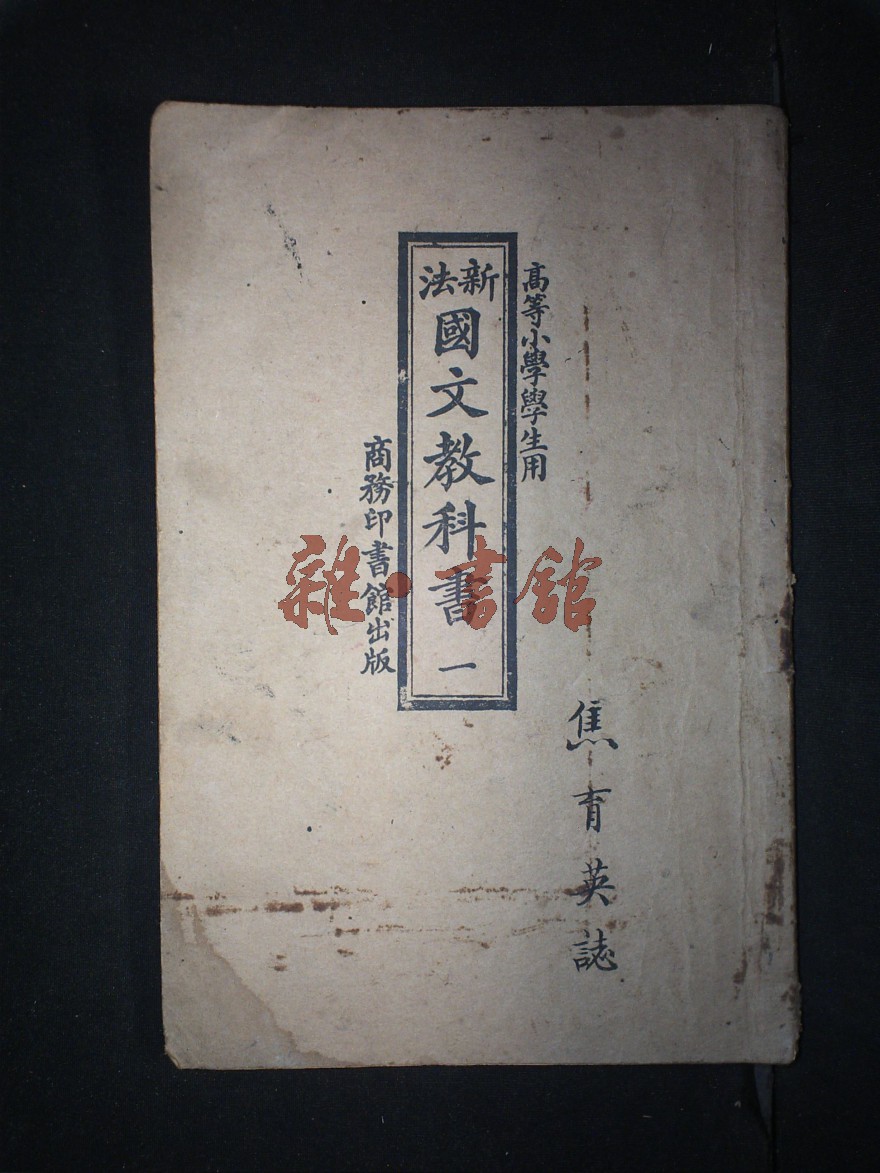 高等小學學生用
新法
國文教科書 一
商務印書館出版
焦育英誌
雜·書館